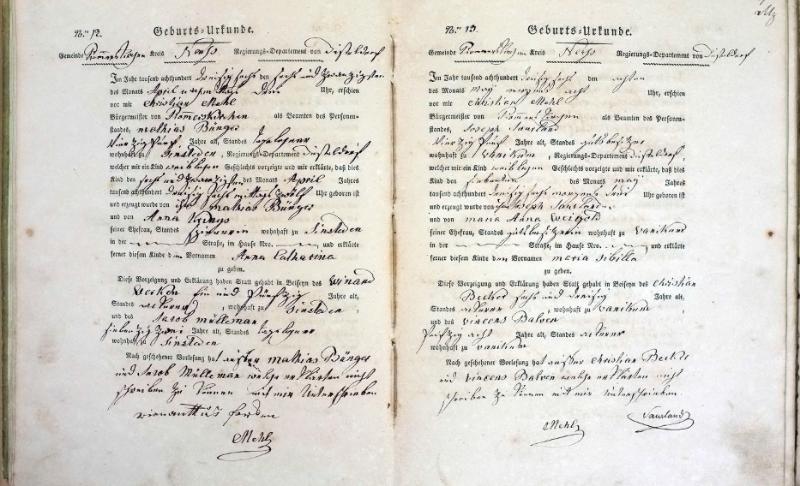 No. 12. Geburts-Urkunde.
Gemeinde Rommerskirchen Kreis Neuß Regierungs-Departement von Düsseldorf
Im Jahr tausend achthundert dreisig sechs den sechs und zwanzigsten
des Monats April Uhr, erschien
vor mir Christian Mehl
Bürgermeister von Rommerskirchen als Beamten des Personen-
standes, mathias Bünges
vierzig fünf Jahr alt, Standes tagelöhner
wohnhaft zu Sinsteden, Regierungs-Departement Düsseldorf,
welcher mir ein Kind weiblichen Geschlechts vorzeigte und mir erklärte, daß dies
Kind den sechs und zwanzigsten des Monats April Jahres
tausend achthundert dreisig sechs mittags zwölf Uhr geboren ist
und erzeugt wurde von ihm mathias Bünges
und von Anna
seiner Ehefrau, Standes wohnhaft zu Sinsteden
in der Straße, im Hause Nro. und erklärte
ferner diesem Kinde den Vornamen Anna Catharina
zu geben.
Diese Vorzeigung und Erklärung haben Statt gehabt in Beiseyn des Winand
ein und fünfzig Jahre alt,
Standes ackerer, wohnhaft zu Sinsteden
und des Jacob mülleman
siebenzig zwei Jahre alt, Standes tagelöhner
wohnhaft zu Sinsteden
Nach geschehener Vorlesung hat außer mathias Bünges
und Jacob Mülleman welche erklärten nicht
schreiben zu können mit mir Unterschrieben
Mehl
No. 13. Geburts-Urkunde.
Gemeinde Rommerskirchen Kreis Neuß Regierungs-Departement von Düsseldorf
Im Jahr tausend achthundert dreisig sechs den achten
des Monats may morgens acht Uhr, erschien
vor mir Christian Mehl
Bürgermeister von Rommerskirchen als Beamten des Personen-
standes, Joseph Saurland
vierzig fünf Jahr alt, Standes gutsbesitzer
wohnhaft zu Vanikum, Regierungs-Departement Düsseldorf,
welcher mir ein Kind weiblichen Geschlechts vorzeigte und mir erklärte, daß dies
Kind den siebenten des Monats may Jahres
tausend achthundert dreisig sechs morgens drei Uhr geboren ist
und erzeugt wurde von ihm Joseph Saurland
und von maria Anna Weigold
seiner Ehefrau, Standes gutsbesitzerin wohnhaft zu Vanikum
in der Straße, im Hause Nro. und erklärte
ferner diesem Kinde den Vornamen maria Sibilla
zu geben.
Diese Vorzeigung und Erklärung haben Statt gehabt in Beiseyn des Christian
Becker sechs und dreisig Jahre alt,
Standes ackerer, wohnhaft zu Vanikum
und des vincens
fünfzig acht Jahre alt, Standes ackerer
wohnhaft zu Vanikum
Nach geschehener Vorlesung hat außer Christian Becker
und vincens welche erklärten nicht
schreiben zu können mit mir Unterschrieben.
Mehl Saurland